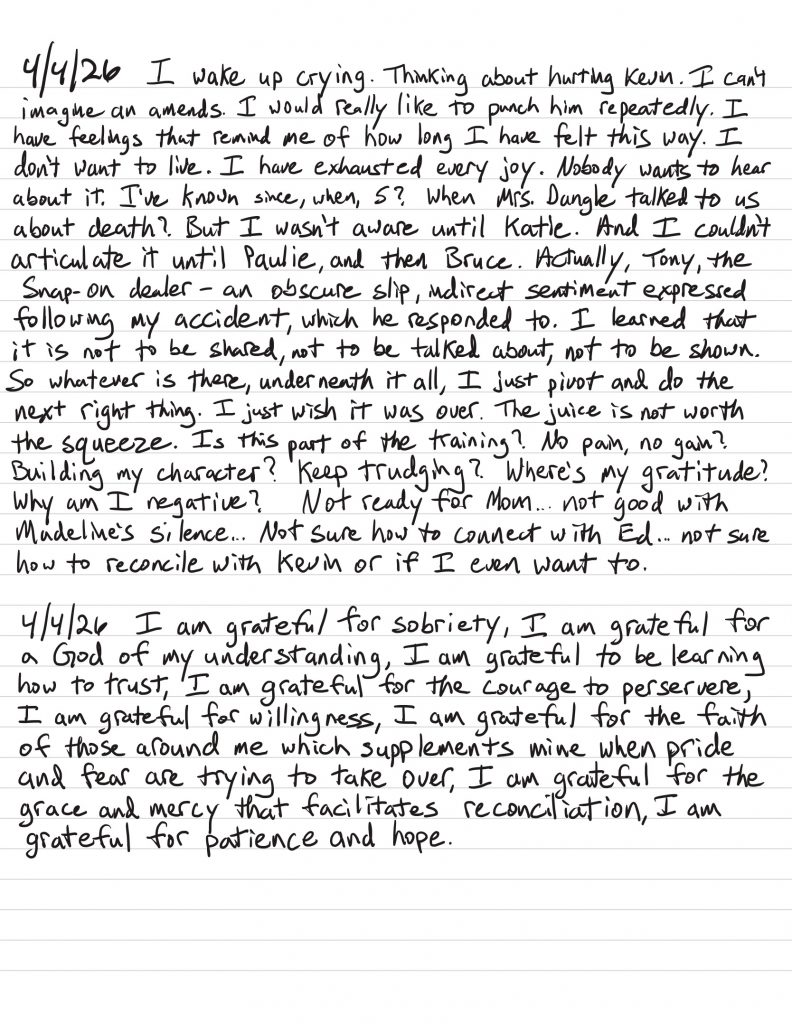 4/4/26 I wake up crying. Thinking about hurting Kevin. I can't
imagine an amends. I would really like to punch him repeatedly. I
have feelings that remind me of how long I have felt this way. I
don't want to live. I have exhausted every joy. Nobody wants to hear
about it. I've known since, when, 5? When Mrs. Dangle talked to us
about death? But I wasn't aware until Katie. And I couldn't
articulate it until Paulie, and then Bruce. Actually, Tony, the
Snap-on dealer - an obscure slip, indirect sentiment expressed
following my accident, which he responded to. I learned that
it is not to be shared, not to be talked about, not to be shown.
So whatever is there, underneath it all, I just pivot and do the
next right thing. I just wish it was over. The juice is not worth
the squeeze. Is this part of the training? No pain, no gain?
Building my character? Keep trudging? Where's my gratitude?
Why am I negative? Not ready for Mom... not good with
Madeline's silence... Not sure how to connect with Ed... not sure
how to reconcile with Kevin or if I even want to.
4/4/26 I am grateful for sobriety, I am grateful for
a God of my understanding, I am grateful to be learning
how to trust, I am grateful for the courage to perservere,
I am grateful for willingness, I am grateful for the faith
of those around me which supplements mine when pride
and fear are trying to take over, I am grateful for the
grace and mercy that facilitates reconciliation, I am
grateful for patience and hope.